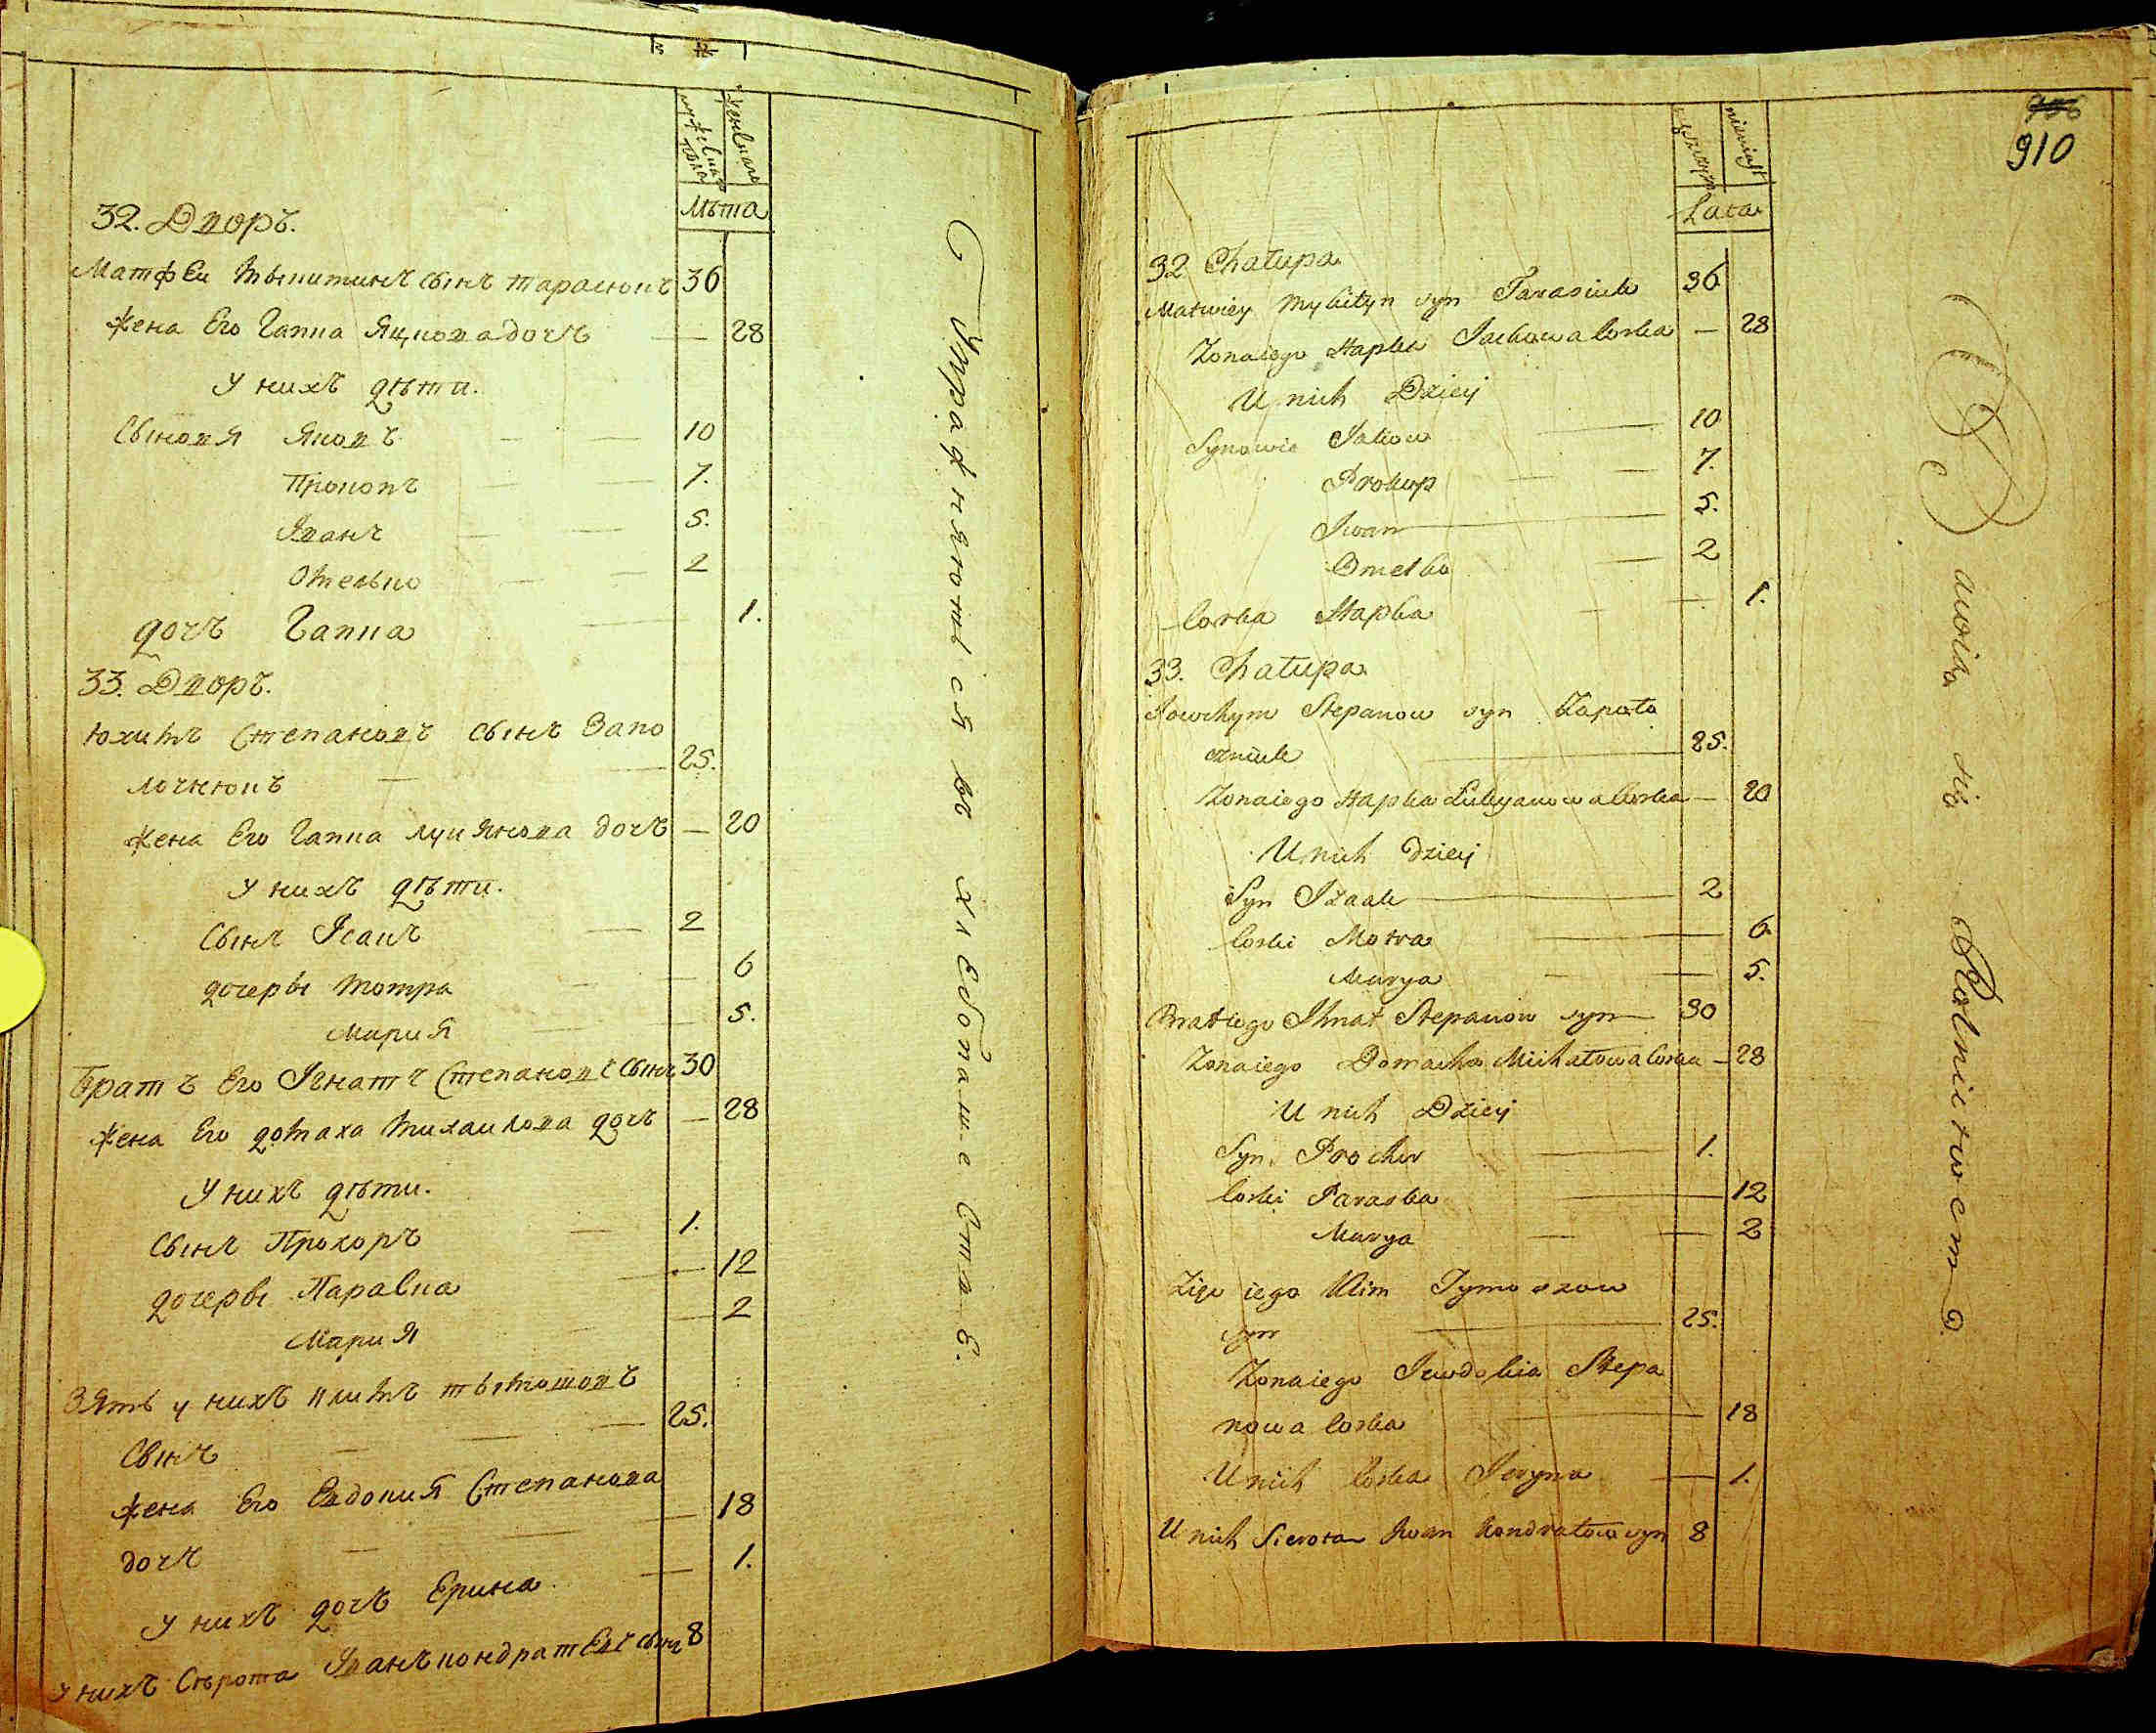 мужеска пола
женскаго
Лѣта
32. Дворъ.
Матфеи Мыкитинъ сынъ тарасюкъ 36
Жена Его Гапка Яцкова дочъ — 28
У нихъ дѣти.
Сыновя Яковъ — 10
Прокопъ — 7.
Іванъ — 5.
Омелько — 2
дочъ Гапка — 1.
33. Дворъ.
Юхимъ Степановъ сынъ Запо
лочнюкъ — 25.
Жена Его Гапка лукянова дочъ — 20
У нихъ дѣти.
Сынъ Ісакъ — 2
дочеры Мотра — 6
Мария — 5.
Братъ Его Ігнатъ Степановъ сынъ 30
Жена Его домаха Михаилова дочъ — 28
У нихъ дѣти.
Сынъ Прохоръ — 1.
дочеры Параска — 12
Мария — 2
Зять у нихъ климъ тымошовъ
Сынъ — 25.
Жена Его Евдокия Степанова
дочъ — 18
У нихъ дочъ Ерина — 1.
У нихъ Сѣрота Іванъ кондратевъ сынъ 8
Упражняются въ хлебопашестве.
910
męzczyzn
niewiast
Lata
32 Chałupa
Matwiey Mykityn syn Tarasiuk 36
Zona iego Hapka Jackowa Corka — 28
U nich Dzieci
Synowie Jakow — 10
Prokop — 7.
Iwan — 5.
Omelko — 2
Corka Hapka — 1.
33. Chałupa
Jowchym Stepanow syn Zapoło
czniuk — 25.
Zona iego Hapka Lukyanowa Corka — 20
U nich dzieci
Syn Izaak — 2
Corki Motra — 6
Marya — 5.
Brat iego Ihnat Stepanow syn — 30
Zona iego Domacha Michałowa Corka — 28
U nich Dzieci
Syn Prochor — 1.
Corki Paraska — 12
Marya — 2
Zięc iego Klim Tymoszow
syn — 25.
Zona iego Iewdokia Stepa
nowa Corka — 18
U nich Corka Jeryna — 1.
U nich Sierota Iwan Kondratow syn 8
Bawią się Rolnictwem